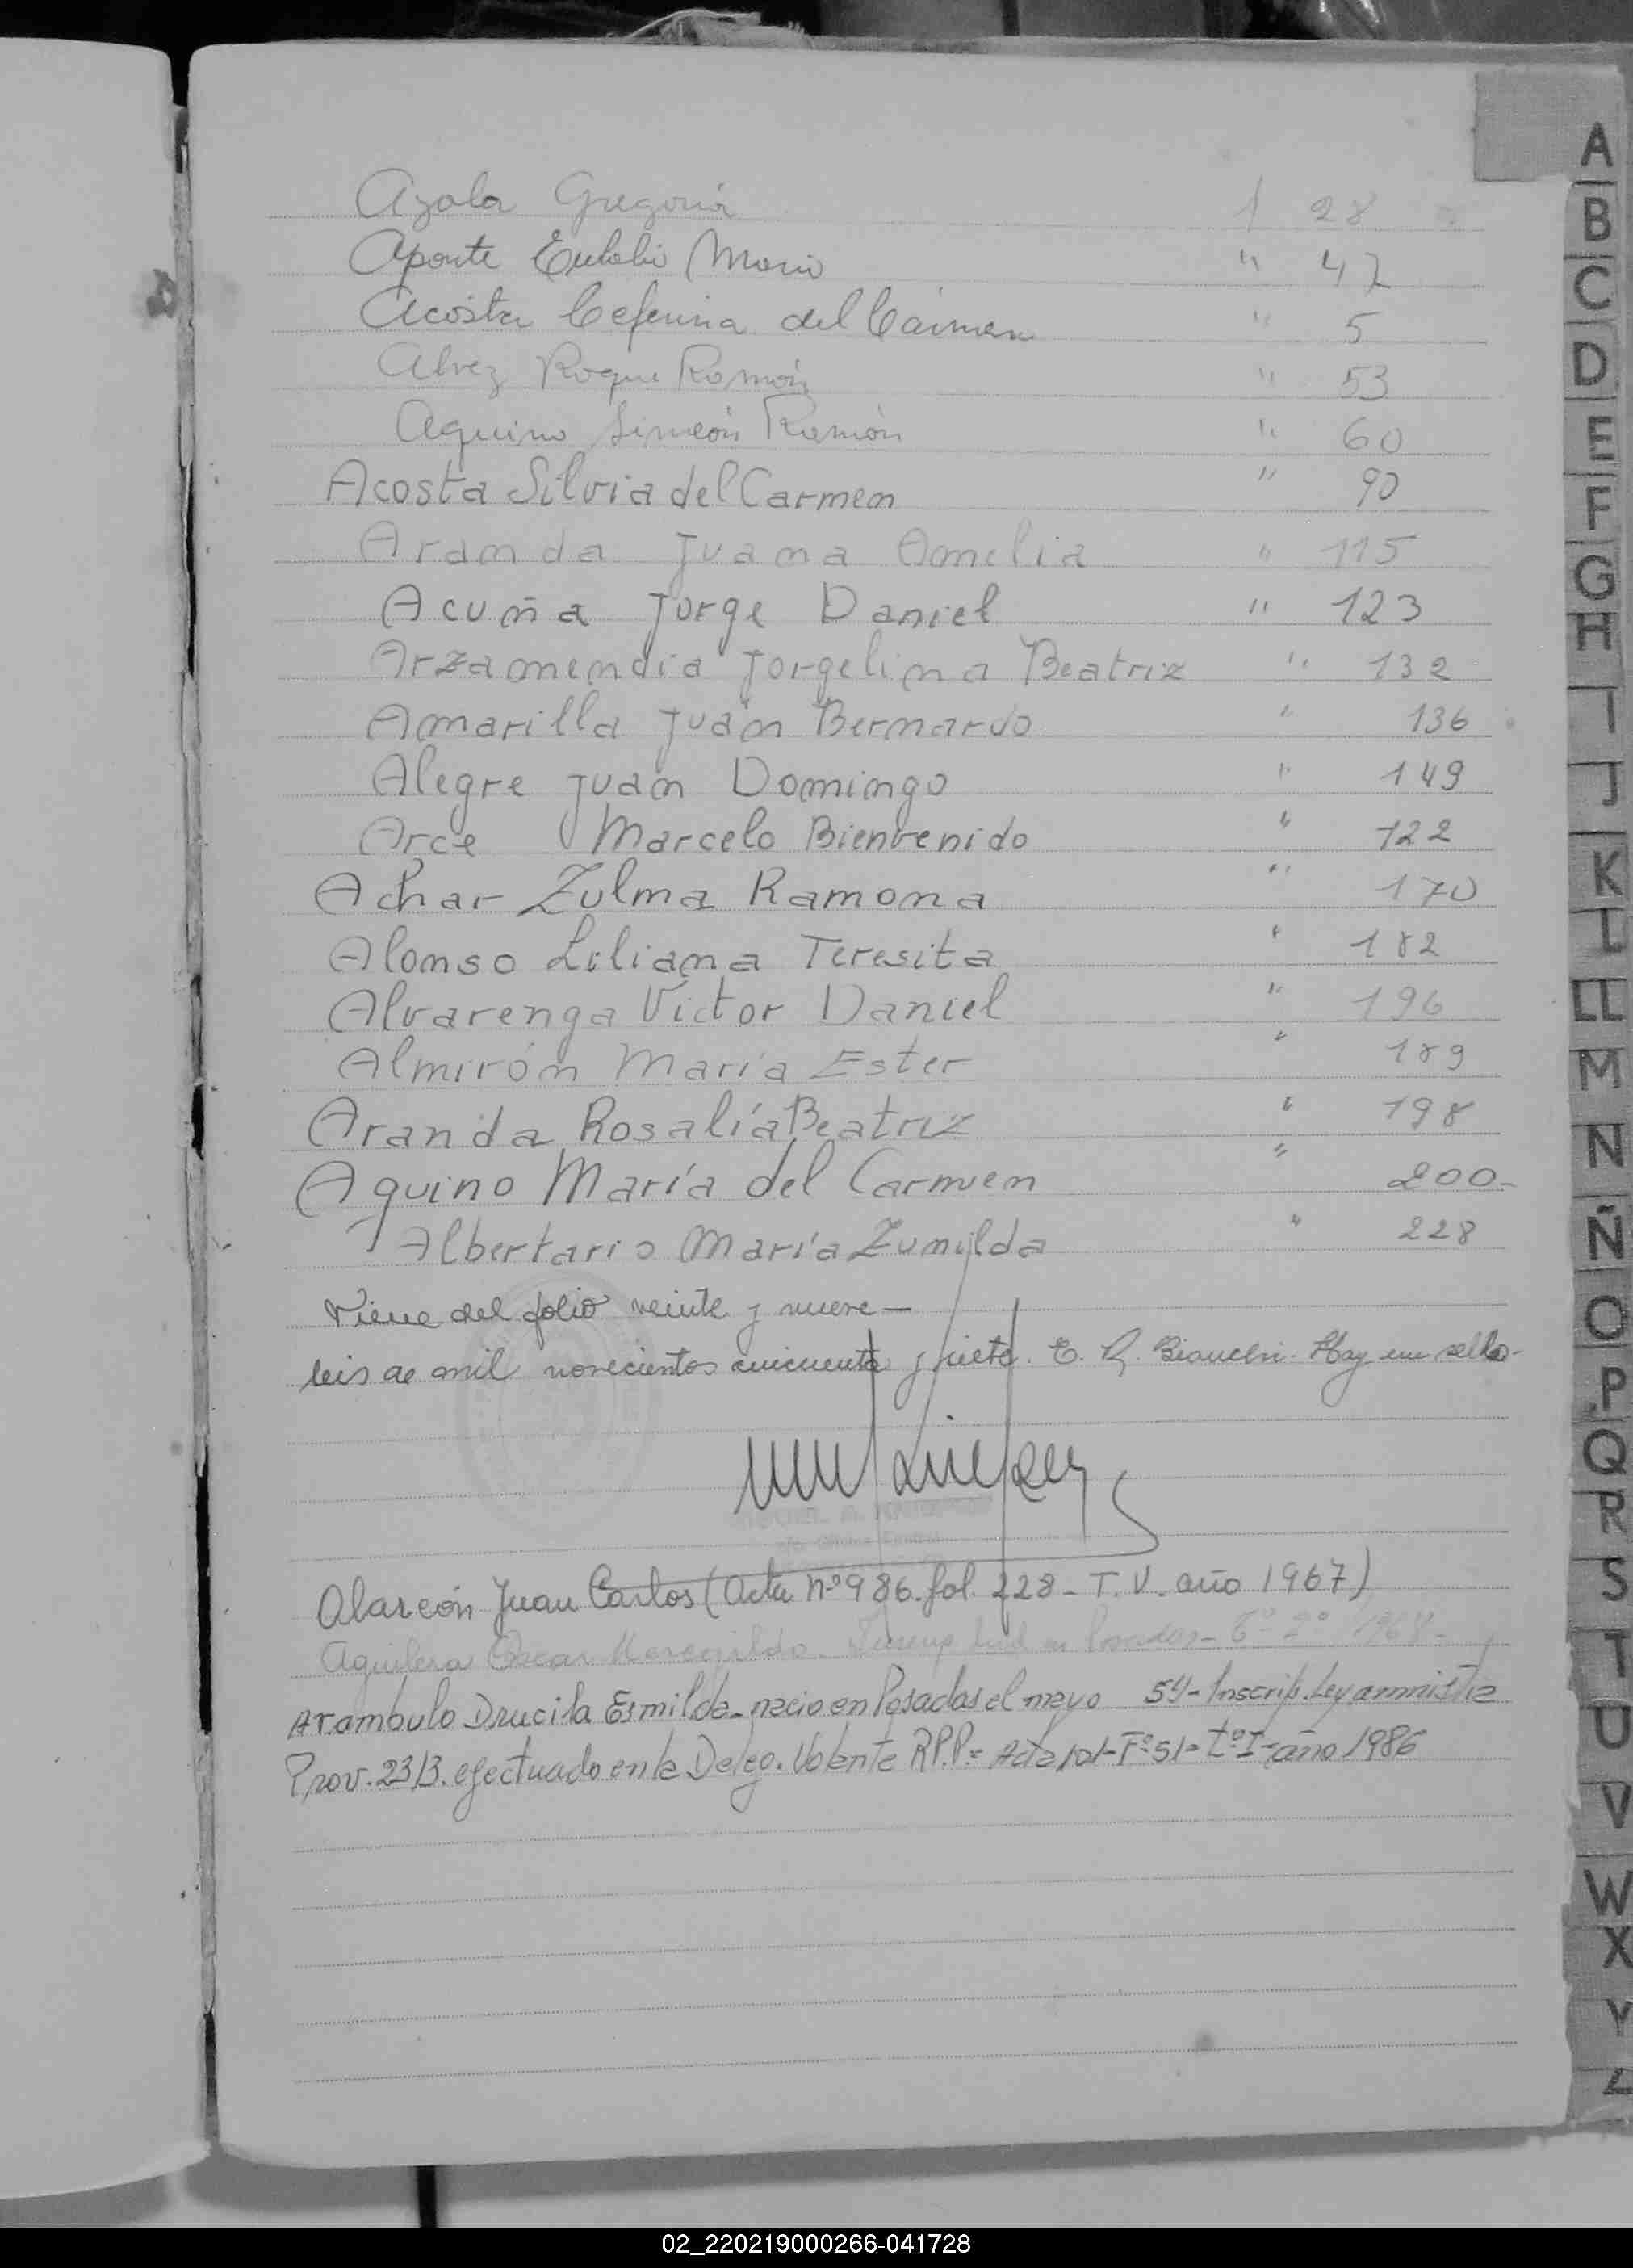 Ayala Gregoria 1 28
Aponte Eulalio Mario " 47
Acosta Ceferina del Carmen " 5
Alvez Roque Ramón " 53
Aquino Simeón Ramón " 60
Acosta Silvia del Carmen " 90
Aranda Juana Amelia " 115
Acuña Jorge Daniel " 123
Arzamendia Jorgelina Beatriz " 132
Amarilla Juan Bernardo " 136
Alegre Juan Domingo " 149
Arce Marcelo Bienvenido " 122
Achar Zulma Ramona " 170
Alonso Liliana Teresita " 182
Alvarenga Víctor Daniel " 196
Almirón María Ester " 189
Aranda Rosalía Beatriz " 198
Aquino María del Carmen " 200-
Albertario María Zunilda " 228
Viene del folio veinte y nueve —
seis de mil novecientos cincuenta y siete. E. R. Bianchi. Hay un sello-
Alarcón Juan Carlos (Acta nº 986. fol. 228 - T. V. año 1967)
Aguilera Oscar - Tº 2º 1968-
Arambulo Drucila Ermilda - nacio en Posadas el mayo 54 - Inscrip. Ley amnistia
Prov. 2313. efectuado en la Deleg. Volante R.P.P = Acta 101 - Fº 51 = tº I - año 1986
A
B
C
D
E
F
G
H
I
J
K
L
LL
M
N
Ñ
O
P
Q
R
S
T
U
V
W
X
Y
Z
02_220219000266-041728